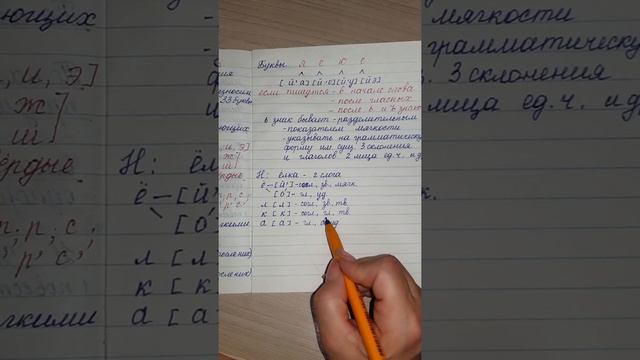 Буквы я ё ю е
[й'а] [й'о] [й'у] [й'э]
если пишутся - в начале слова
- после гласных
- после ь и ъ знаков
ь знак бывает - разделительным
- показателем мягкости
- указывать на грамматическую
форму им. сущ. 3 склонения
и глаголов 2 лица ед.ч. и
Н: ёлка - 2 слога
ё - [й'] - согл., зв., мягк.
[о] - гл., уд.
л [л] - согл., зв., тв.
к [к] - согл., гл., тв.
а [а] - гл.,